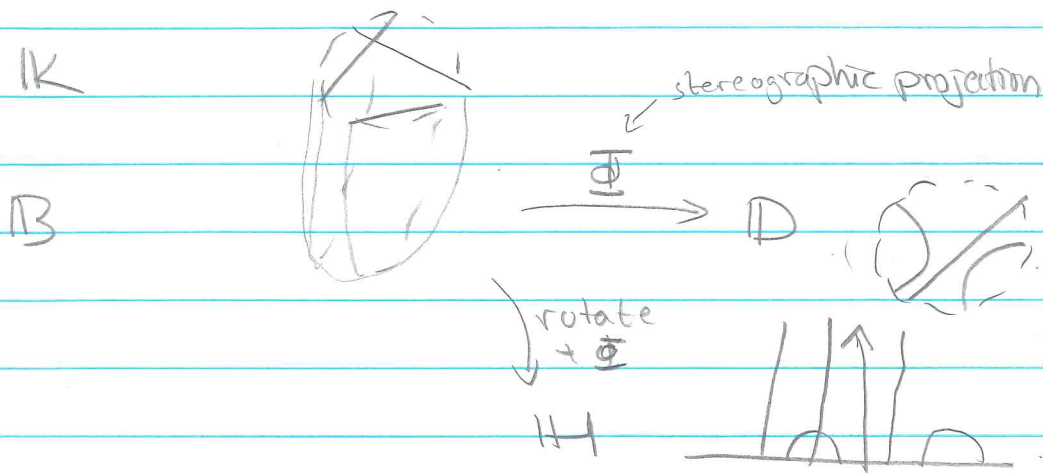 𝕂
stereographic projection
Φ
𝔹
𝔻
rotate
+ Φ
ℍ